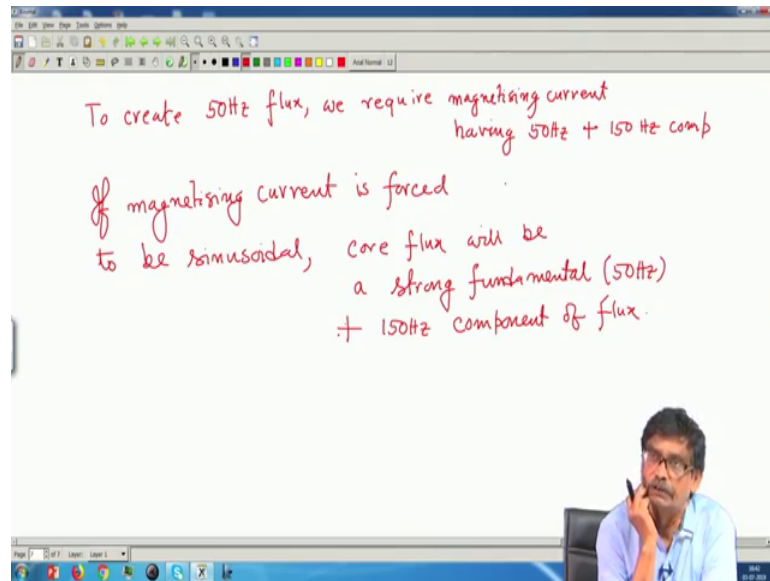 File Edit View Page Tools Options Help
Arial Normal 12
To create 50Hz flux, we require magnetising current
having 50Hz + 150 Hz comp
If magnetising current is forced
to be sinusoidal, core flux will be
a strong fundamental (50Hz)
+ 150Hz component of flux.
Page 7 of 7 Layer: Layer 1